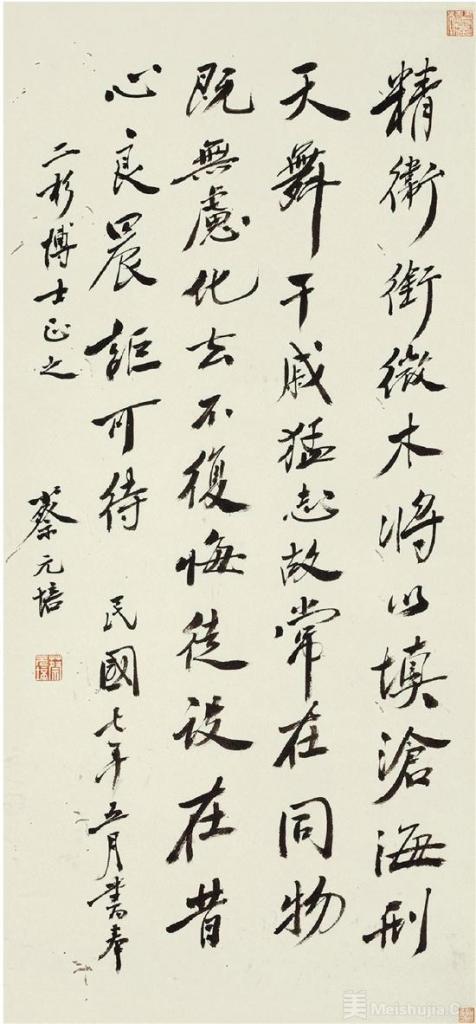 精衛銜微木將以填滄海刑
天舞干戚猛志故常在同物
既無慮化去不復悔徒設在昔
心良晨詎可待 民國七年五月書奉
二杉博士正之
蔡元培
美 Meishujia.Cn